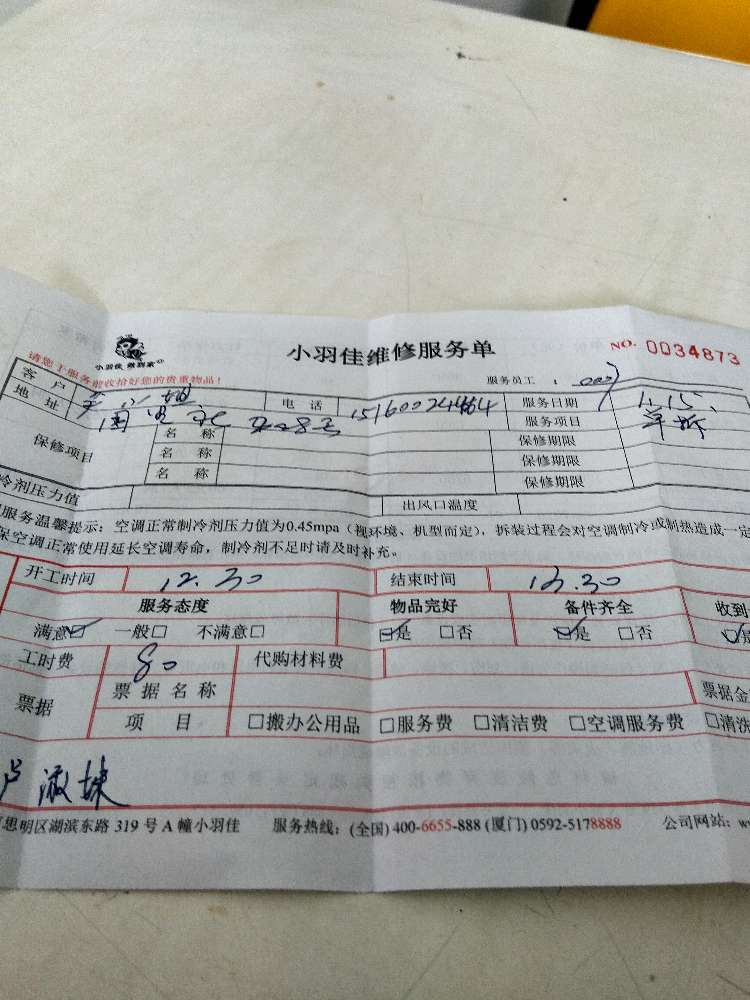 小羽佳 做到家
小羽佳维修服务单
NO. 0034873
请您于服务前收拾好您的贵重物品！
服务员工：
客户 电话 15160024464 服务日期 1.15.
地址 服务项目 单拆
保修项目 名称 保修期限
名称 保修期限
名称 保修期限
冷剂压力值 出风口温度
服务温馨提示：空调正常制冷剂压力值为0.45mpa（视环境、机型而定），拆装过程会对空调制冷或制热造成一定
保空调正常使用延长空调寿命，制冷剂不足时请及时补充。
开工时间 12.30 结束时间 13.30
服务态度 物品完好 备件齐全 收到
满意☑ 一般□ 不满意□ ☑是 □否 ☑是 □否 ☑是
工时费 80 代购材料费
票据 票据名称 票据金
项目 □搬办公用品 □服务费 □清洁费 □空调服务费 □清洗
思明区湖滨东路 319 号 A 幢小羽佳 服务热线：(全国) 400-6655-888 (厦门) 0592-5178888 公司网站：w